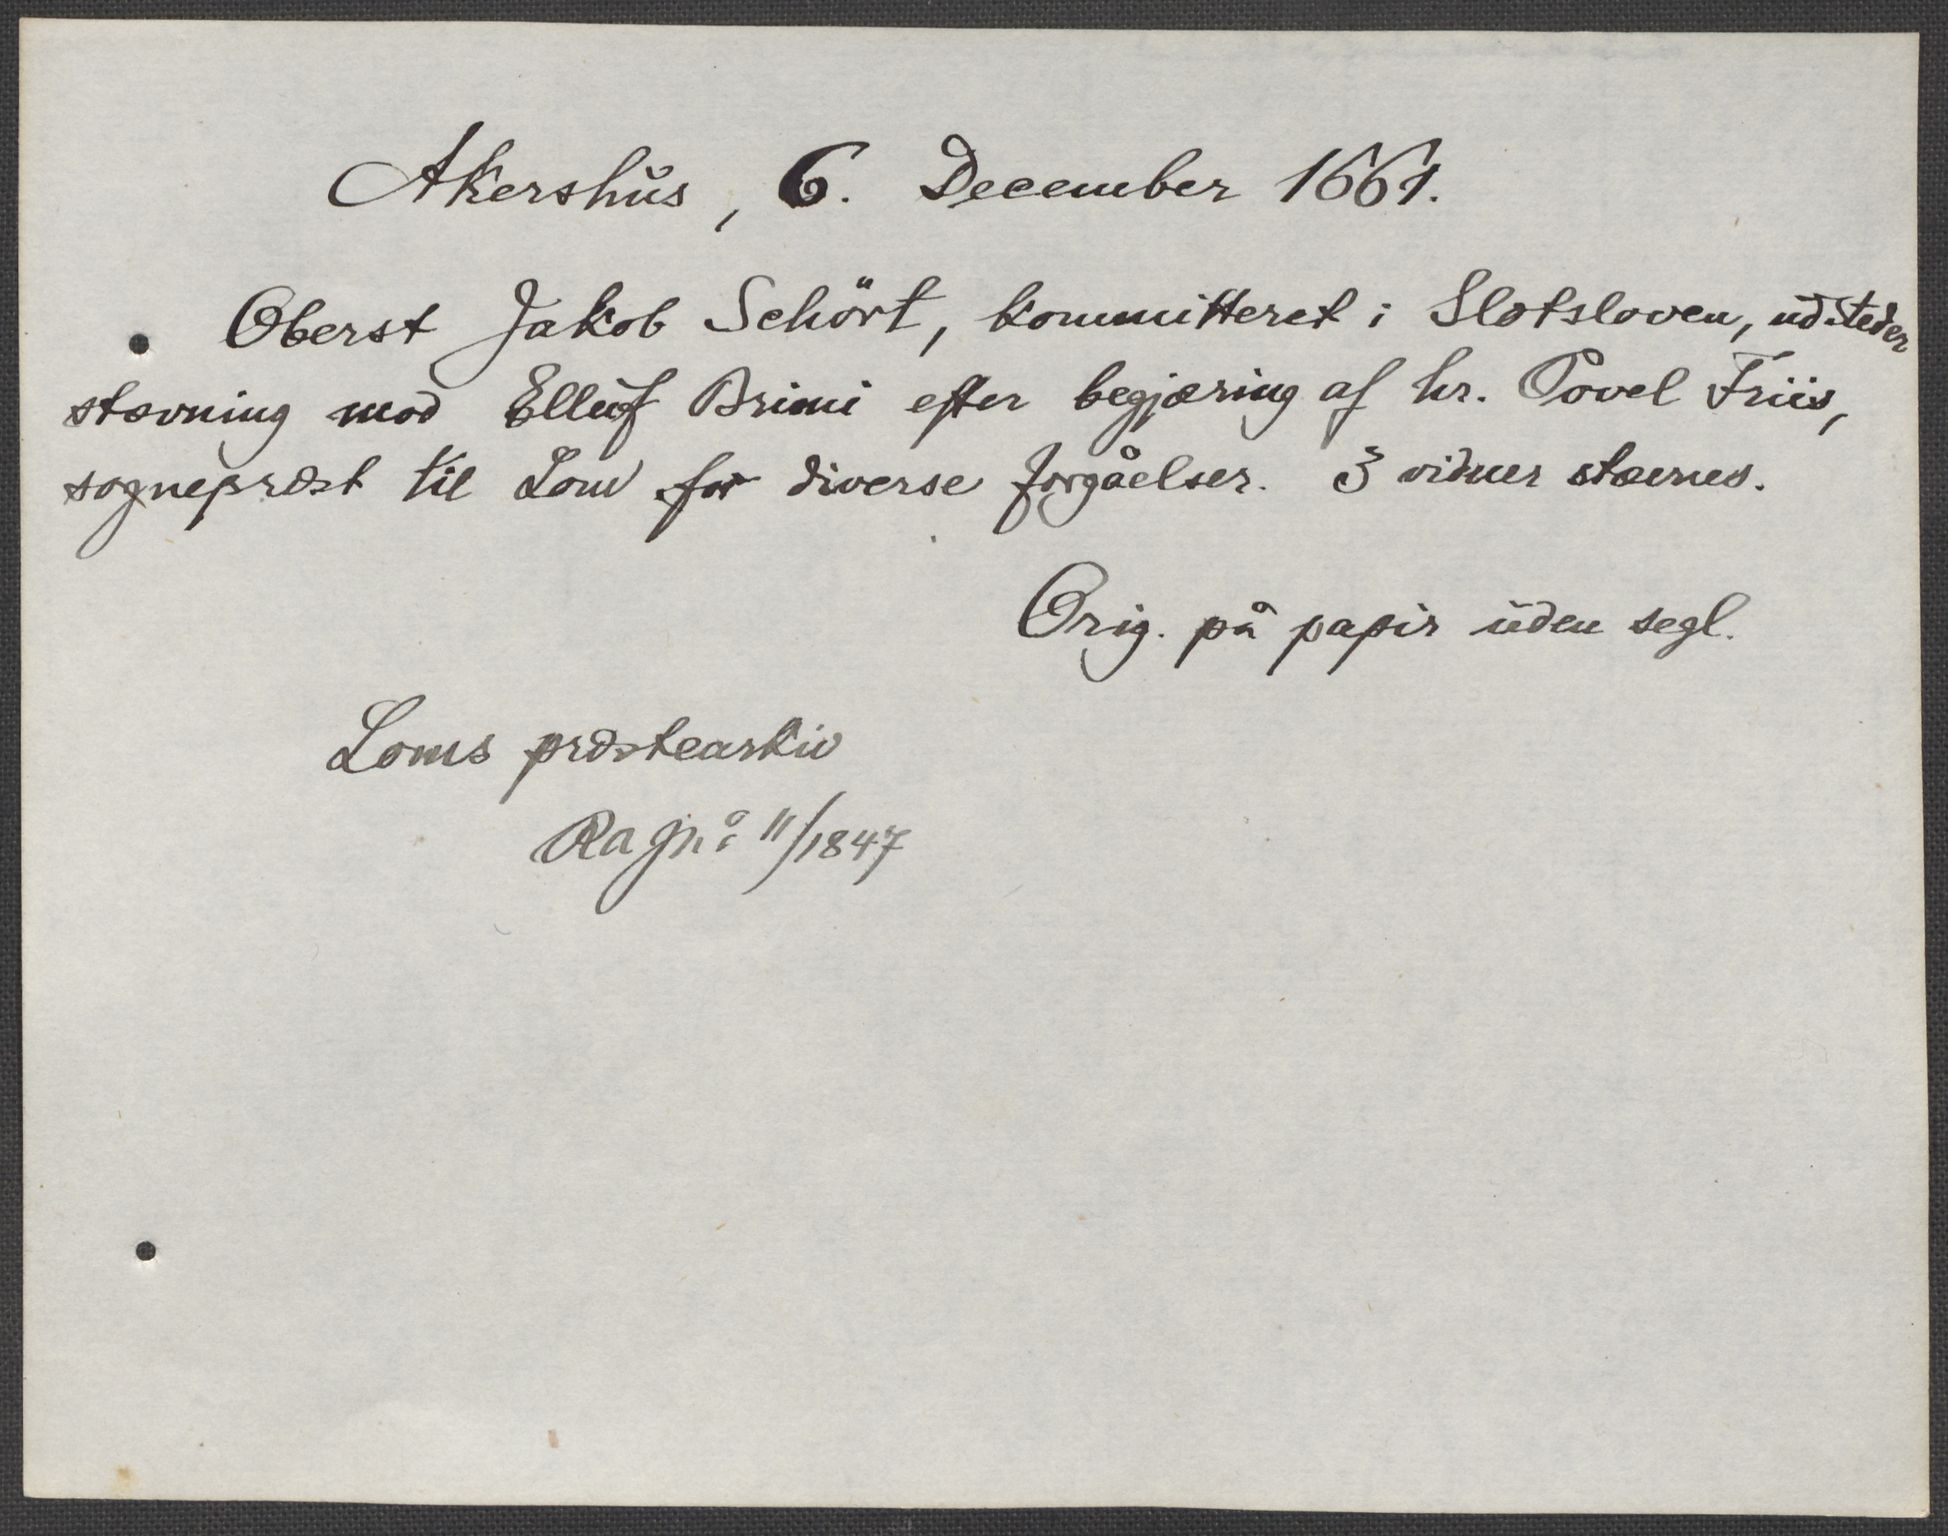 Akershus, 6. December 1661.
Oberst Jakob Schört, kommitteret i Slotsloven, udsteder
stævning mod Elluf Brimi efter begjæring af hr. Povel Friis,
sognepræst til Lom for diverse forgåelser. 3 vidner stævnes.
Orig. på papir uden segl.
Loms præstearkiv
Ra jno 11/1847